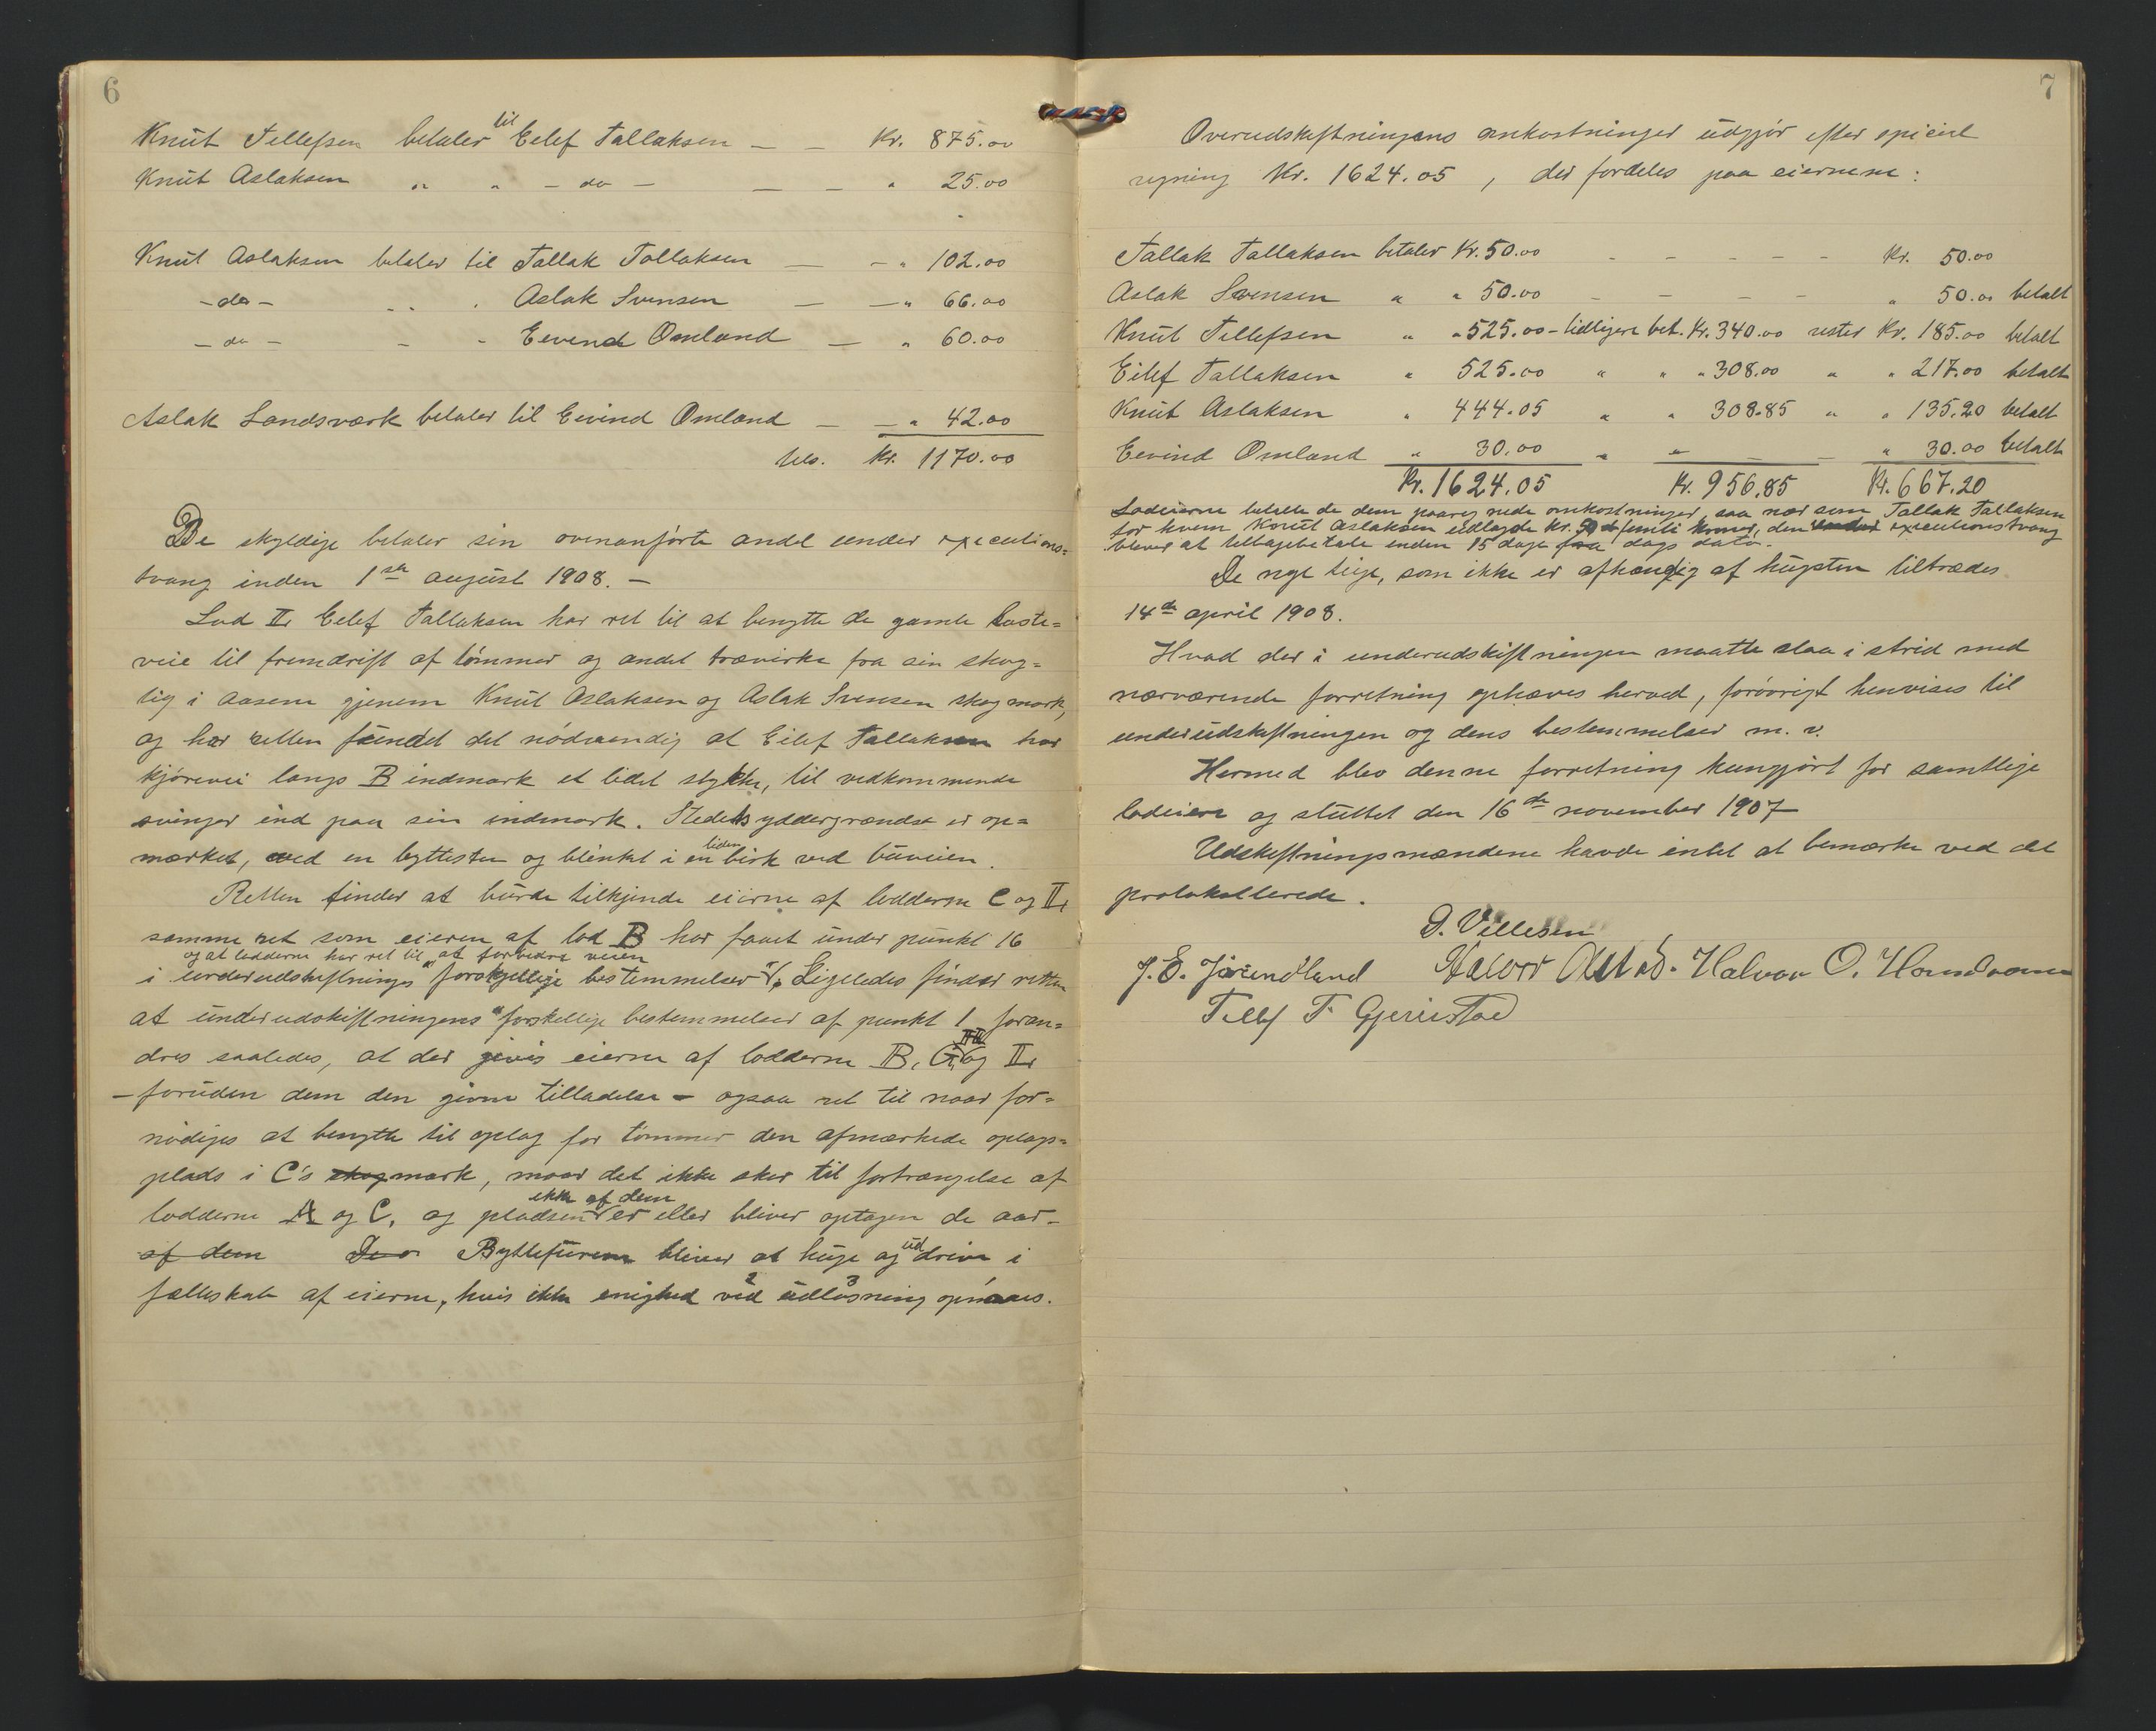 6
Knut Tellefsen betaler til Eilef Tallaksen — — Kr. 875.00
Knut Aslaksen " " — do — — — " 25.00
Knut Aslaksen betaler til Tallak Tallaksen — — " 102.00
— do — " " Aslak Svensen — — " 66.00
— do — " " Eivind Omland — " 60.00
Aslak Landsværk betaler til Eivind Omland — — " 42.00
tils. Kr. 1170.00
De skyldige betaler sin ovenanførte andel under executions=
tvang inden 1ste august 1908. —
Lod II Eilef Tallaksen har ret til at benytte de gamle laste=
veie til fremdrift af tømmer og andet trævirke fra sin skog=
teig i aasene gjenem Knut Aslaksen og Aslak Svensen skogmark,
og har retten fundet det nødvendig at Eilef Tallaksen har
kjørevei langs B indmark et lidet stykke, til vedkommende
svinger ind paa sin indmark. Stedets yddergrændse er op=
mærket, med en byttesten og blinket i en liden birk ved buveien.
Retten finder at burde tilkjende eierne af lodderne C og II
samme ret som eieren af lod B har faaet under punkt 16
og at lodderne har ret til at forbedre veien
i underudskiftnings forskjellige bestemmelser". Ligeledes finder retten
at underudskiftningens "forskellige bestemmelser af punkt 1 foran=
dres saaledes, at der givis eierne af lodderne B, G, og II
— foruden dem den givne tilladelse — ogsaa ret til naar for=
nødiges at benytte til oplag for tømmer den afmærkede oplags=
plads i C's skogmark, naar det ikke sker til fortrængelse af
lodderne A og C, og pladsen ikke af dem er eller bliver optagen de aar
af dem De Byttefurene bliver at huge og uddrive i
fælleskab af eierne, hvis ikke enighed ved udløsning opnaaes.
7
Overudskiftningens omkostninger udgjør efter speciel
regning Kr. 1624.05, der fordeles paa eiernene:
Tallak Tallaksen betaler Kr. 50.00 - - - - - Kr. 50.00
Aslak Svensen " " 50.00 - - - - " 50.00 betalt
Knut Tellefsen " " 525.00 — tidligere bet. Kr. 340.00 rester Kr. 185.00 betalt
Eilef Tallaksen " 525.00 " " " 308.00 " " 217.00 betalt
Knut Aslaksen " 444.05 " " 308.85 " " 135.20 betalt
Eivind Omland " 30.00 " " — — " 30.00 betalt
Kr. 1624.05 Kr. 956.85 Kr. 667.20
Lodeierne betalte de dem paareg nede omkostninger, saa nær som Tallak Tallaksen
for hvem Knut Aslaksen udlagde kr. 50 femti kroner, den under executionstvang
bliver at tilbagebetale inden 15 dage fra dags dato.
De nye teige, som ikke er afhængig af hugsten tiltrædes
14de april 1908.
Hvad der i underudskiftningen maatte staa i strid med
nærværende forretning ophæves herved, forøvrigt henvises til
underudskiftningen og dens bestemmelser m. v.
Hermed blev denne forretning kungjørt for samtlige
lodeiere og sluttet den 16de november 1907
Udskiftningsmændene havde intet at bemærke ved det
protokollerede.
D. Villesen
J. E. Jørundland Halvor Austad. Halvor O. Homdrom
Tellef T. Gjerustad